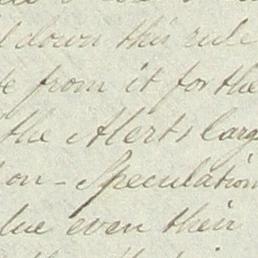 down this rule
from it for the
the Alerts larg
on - Speculation
lue even their